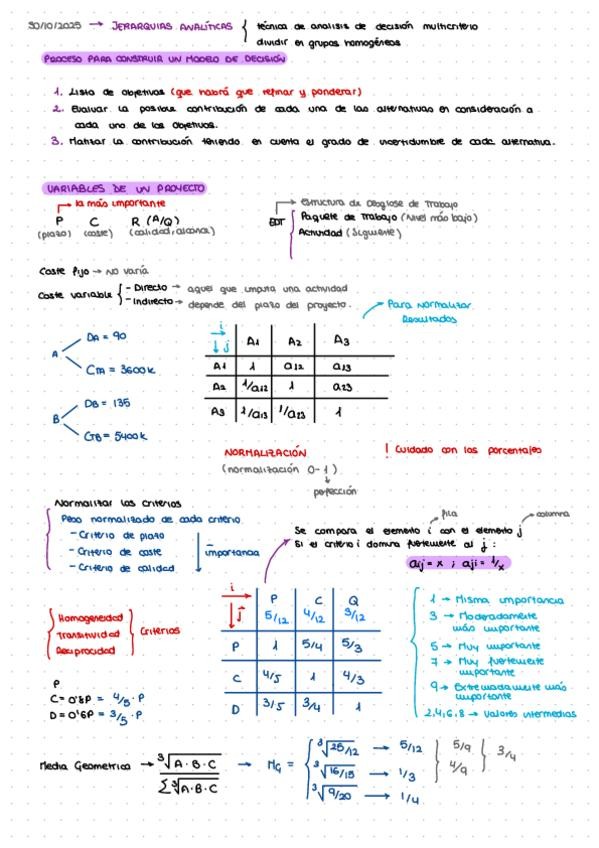 30/10/2025 → JERARQUIAS ANALÍTICAS { técnica de analisis de decisión multicriterio
dividir en grupos homogéneos
PROCESO PARA CONSTRUIR UN MODELO DE DECISIÓN
1. Lista de objetivos (que habrá que refinar y ponderar)
2. Evaluar la posible contribución de cada una de las alternativas en consideración a
cada uno de los objetivos.
3. Matizar la contribución teniendo en cuenta el grado de incertidumbre de cada alternativa.
VARIABLES DE UN PROYECTO
la más importante
P C R (A/Q)
(plazo) (coste) (calidad, alcance)
EDT → Estructura de Desglose de Trabajo
Paquete de Trabajo (Nivel más bajo)
Actividad (Siguiente)
Coste fijo → No varía
Coste variable { - Directo → aquel que imputa una actividad
- Indirecto → depende del plazo del proyecto.
Para normalizar
Resultados
A
DA = 90
CTA = 3600k
B
DB = 135
CTB = 5400k
i → A1 A2 A3
↓ j
A1 1 a12 a13
A2 1/a12 1 a23
A3 1/a13 1/a23 1
NORMALIZACIÓN
(normalización 0-1)
↓
perfección
! Cuidado con los porcentajes
Normalizar los criterios
Peso normalizado de cada criterio
- Criterio de plazo
- Criterio de coste
- Criterio de calidad
↓ importancia
fila
columna
Se compara el elemento i con el elemento j
Si el criterio i domina fuertemente al j:
aij = x ; aji = 1/x
Homogeneidad
Transitividad
Reciprocidad
} Criterios
P
C = 0'8P = 4/5 · P
D = 0'6P = 3/5 · P
i → P C Q
↓ j 5/12 4/12 3/12
P 1 5/4 5/3
C 4/5 1 4/3
D 3/5 3/4 1
1 → Misma importancia
3 → Moderadamente
más importante
5 → Muy importante
7 → Muy fuertemente
importante
9 → Extremadamente más
importante
2,4,6,8 → Valores intermedios
Media Geometrica → ∛A·B·C / Σ∛A·B·C → MG =
∛25/12 → 5/12
∛16/15 → 1/3
∛9/20 → 1/4
5/9
4/9
} 3/4